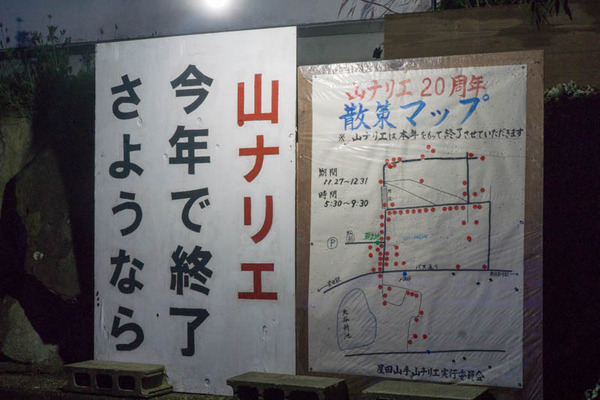 山ナリエ
今年で終了
さようなら
山ナリエ20周年
散策マップ
※ 山ナリエは本年をもって終了させていただきます
期間
11.27~12.31
時間
5:30~9:30
P
バス通り
星田山手山ナリエ実行委員会